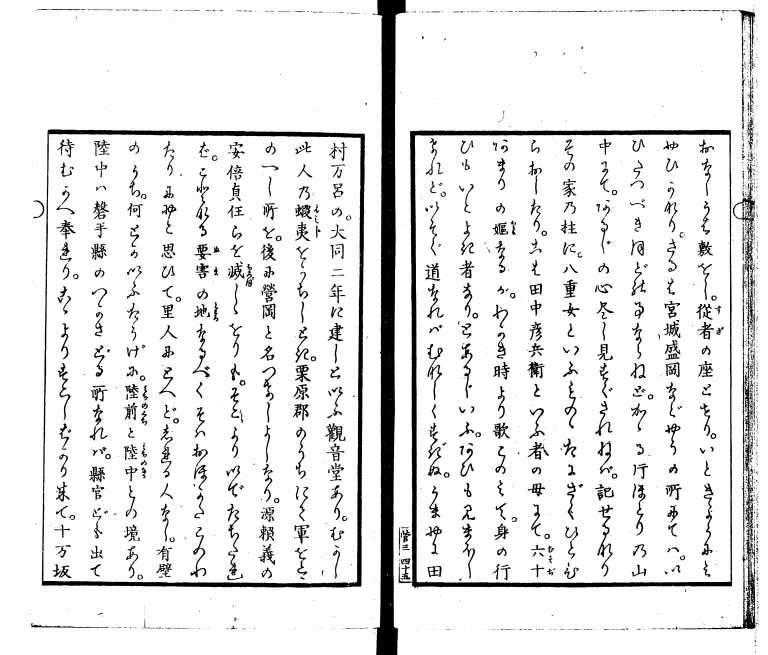 おなしうち敷をし。從者の座とせり。いときよらにみ
やひかなり。さるは宮城盛岡などやうの所にては。い
ひたつべきほどの事ならねど。かゝる片ほとりの山
中にて。あるじの心尽し見すぐされねば。記せるなり
その家乃柱に。八重女といふものゝたにざくひとひ
らおしたり。こは田中彦兵衛といふ者の母にて。六十
あまりの嫗なるが。わかき時より歌このみて。身の行
ひもいとよき者なり。とあるじいふ。あひも見まほし
けれど。いそぐ道なればむなしくすぎぬ。うまやに田
村万呂の。大同二年に建しといふ觀音堂あり。むかし
此人乃蝦夷をうちしとき。栗原郡のうちにて軍をとゝ
のへし所を。後に營岡と名つけしよしなり。源頼義の
安倍貞任らを滅しゝをりも。そこより いでたちたれ
ば。こゝなる要害の地なるべくそはおほかたこのわ
たりにやと思ひて。里人にとへど。しれる人なし。有壁
のうち。何とかいふたうげに。陸前と陸中との境あり。
陸中ハ磐手縣のつかさどる所なれば。縣官ども出て
待むかへ奉れり。こゝよりすこしばかり来て。十万坂